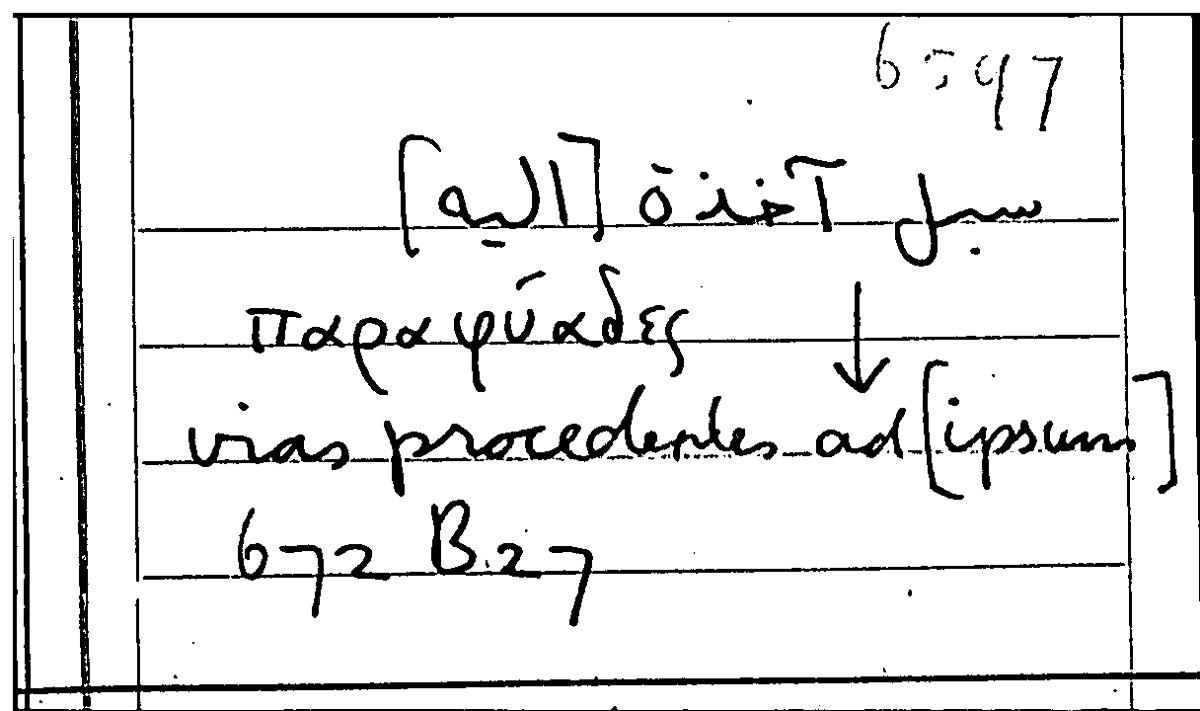 6597
سبل آخذة [اليه]
παραφύαδες ↓
vias procedentes ad [ipsum]
672 B27